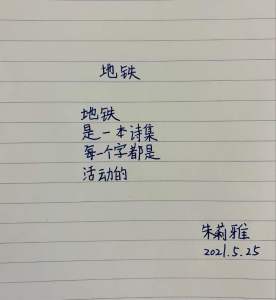 地铁
地铁
是一本诗集
每一个字都是
活动的
朱莉雅
2021.5.25